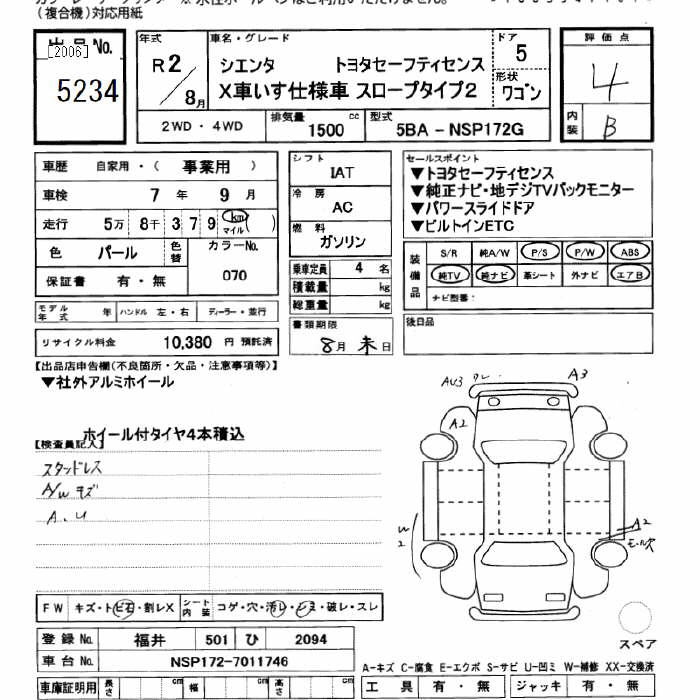 (複合機)対応用紙
出品No.
[2006]
5234
年式
R2/8月
車名・グレード
シエンタ トヨタセーフティセンス
X車いす仕様車 スロープタイプ2
ドア
5
形状
ワゴン
評価点
4
内装
B
2WD・4WD
排気量 1500 cc
型式 5BA-NSP172G
車歴 自家用・( 事業用 )
車検 7年 9月
走行 5万 8千 3 7 9 km マイル ( )
色 パール 色替 カラーNo. 070
保証書 有・無
モデル年式 年 ハンドル 左・右 ディーラー・並行
リサイクル料金 10,380 円 預託済
シフト
IAT
冷房
AC
燃料
ガソリン
乗車定員 4 名
積載量 kg
総重量 kg
書類期限
8月 末日
セールスポイント
▼トヨタセーフティセンス
▼純正ナビ・地デジTVバックモニター
▼パワースライドドア
▼ビルトインETC
装備品
S/R 純A/W P/S P/W ABS
純TV 純ナビ 革シート 外ナビ エアB
ナビ型番:
後日品
【出品店申告欄(不良箇所・欠品・注意事項等)】
▼社外アルミホイール
ホイール付タイヤ4本積込
【検査員記入】
スタッドレス
A/W キズ
A.U
AU3
A3
A2
W2
A2
モール穴
スペア
FW キズ・トビ石・割レX シート内装 コゲ・穴・汚レ・シミ・破レ・スレ
登録No. 福井 501 ひ 2094
車台No. NSP172-7011746
車庫証明用 長さ cm 幅 cm 高さ cm
A-キズ C-腐食 E-エクボ S-サビ U-凹ミ W-補修 XX-交換済
工具 有・無 ジャッキ 有・無